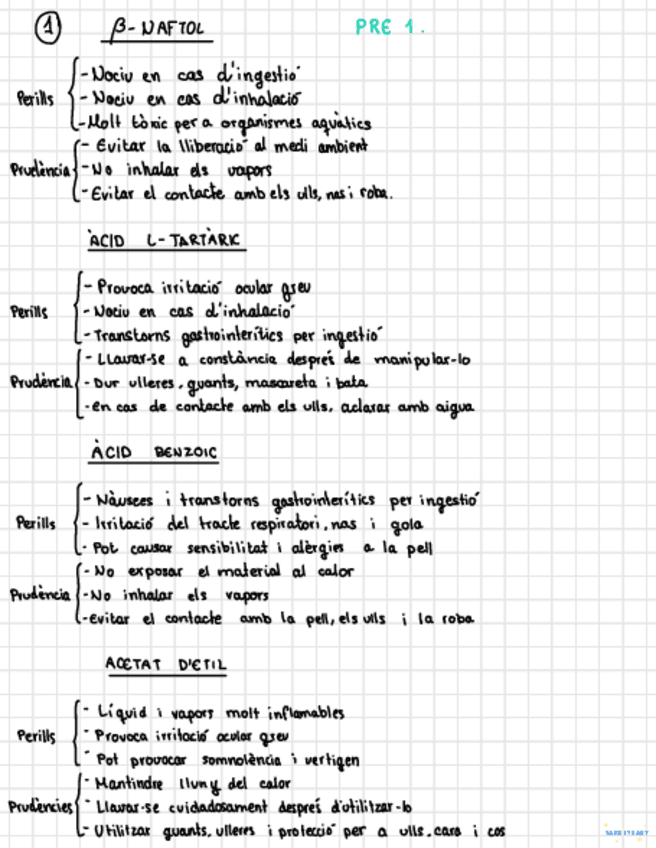 1 β-NAFTOL PRE 1.
- Nociu en cas d'ingestió
Perills - Nociu en cas d'inhalació
- Molt tòxic per a organismes aquàtics
- Evitar la lliberació al medi ambient
Prudència - No inhalar els vapors
- Evitar el contacte amb els ulls, nas i roba.
ÀCID L-TARTÀRIC
- Provoca irritació ocular greu
Perills - Nociu en cas d'inhalació
- Transtorns gastrointerítics per ingestió
- Llavar-se a constància després de manipular-lo
Prudència - Dur ulleres, guants, mascareta i bata
- En cas de contacte amb els ulls, aclarar amb aigua
ÀCID BENZOIC
- Nàusees i transtorns gastrointerítics per ingestió
Perills - Irritació del tracte respiratori, nas i gola
- Pot causar sensibilitat i alèrgies a la pell
- No exposar el material al calor
Prudència - No inhalar els vapors
- Evitar el contacte amb la pell, els ulls i la roba
ACETAT D'ETIL
- Líquid i vapors molt inflamables
Perills - Provoca irritació ocular greu
- Pot provocar somnolència i vertigen
- Mantindre lluny del calor
Prudències - Llavar-se cuidadosament després d'utilitzar-lo
- Utilitzar guants, ulleres i protecció per a ulls, cara i cos